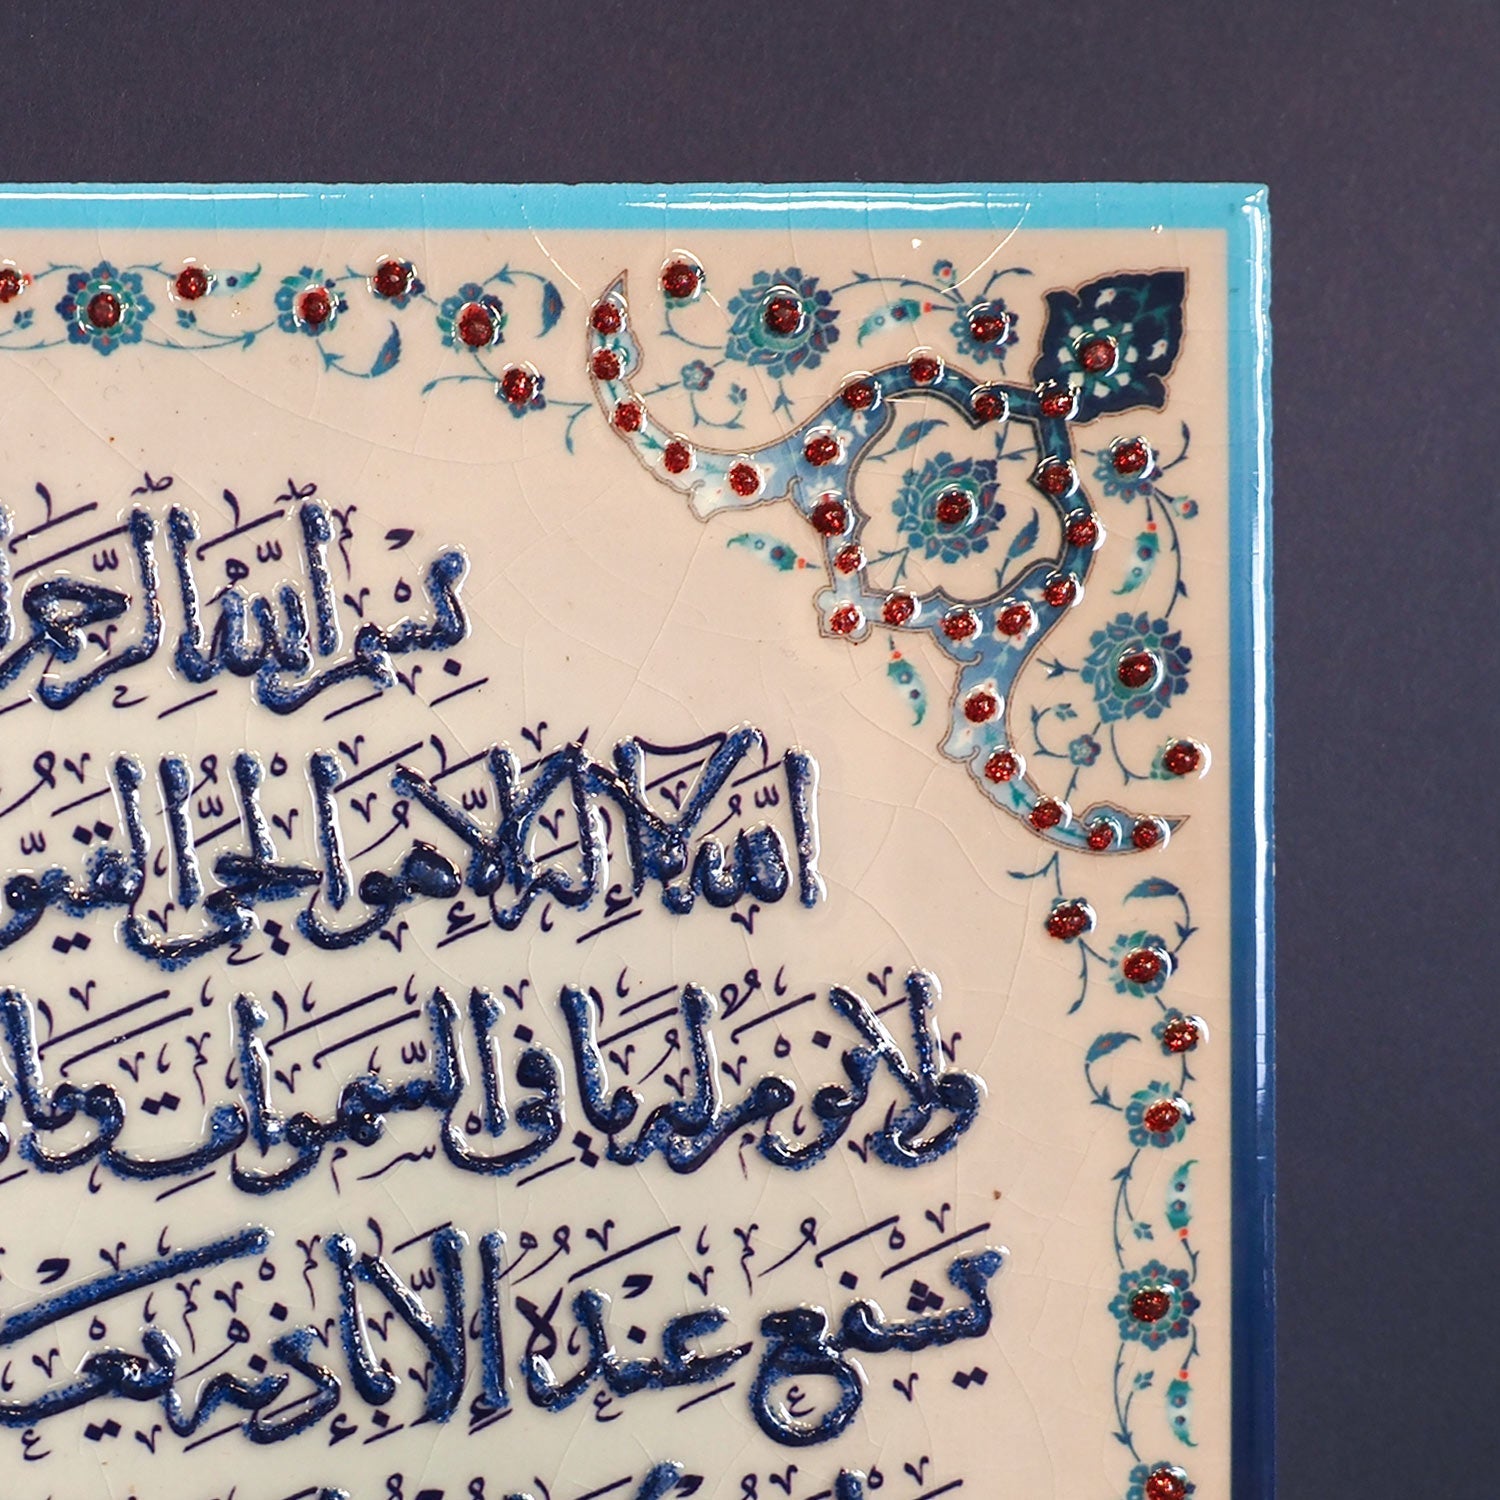 بِسْمِ اللَّهِ الرَّحْمَ
اللَّهُ لَا إِلَٰهَ إِلَّا هُوَ الْحَيُّ الْقَيُّو
وَلَا نَوْمٌ لَهُ مَا فِي السَّمَوَاتِ وَمَا
يَشْفَعُ عِنْدَهُ إِلَّا بِإِذْنِهِ يَعْ